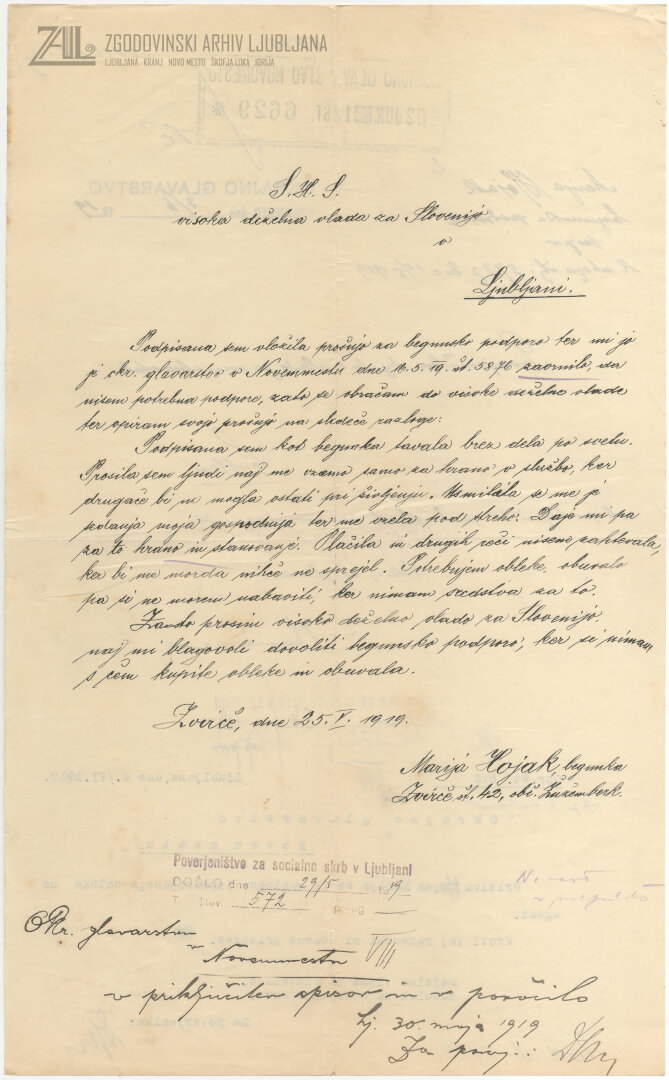 ZAL ZGODOVINSKI ARHIV LJUBLJANA
LJUBLJANA KRANJ NOVO MESTO ŠKOFJA LOKA IDRIJA
S. H. S.
visoka deželna vlada za Slovenijo
v
Ljubljani.
Podpisana sem vložila prošnjo za begunsko podporo ter mi jo
je okr. glavarstvo v Novemmestu dne 16.5.19. št. 5876 zavrnilo, da
nisem potrebna podpore, zato se obračam do visoke deželne vlade
ter opiram svojo prošnjo na sledeče razloge:
Podpisana sem kot begunka tavala brez dela po svetu.
Prosila sem ljudi naj me vzamo samo za hrano v službo, ker
drugače bi ne mogla ostati pri življenju. Usmilila se me je
sedanja moja gospodinja ter me vzela pod streho. Daje mi pa
za to hrano in stanovanje. Plačila in drugih reči nisem zahtevala,
ker bi me morda nihče ne sprejel. Potrebujem obleke, obuvalo
pa si ne morem nabaviti, ker nimam sredstva za to.
Za to prosim visoko deželno vlado za Slovenijo.
naj mi blagovoli dovoliti begunsko podporo, ker si nimam
s čem kupite obleke in obuvala.
Zvirče, dne 25. V. 1919.
Marija Hojak, begunka
Zvirče št. 42, obč. Žužemberk.
Poverjeništvo za socialno skrb v Ljubljani
DOŠLO dne 29/5 1919
štev. 572 prilog —
Okr. glavarstvu
v
Novemmestu VIII
v priključitev spisov in v poročilo
Lj. 30. maja 1919
Za poverj.: